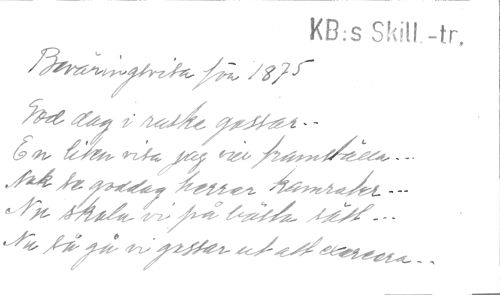 KB:s Skill.-tr.
Beväringsvisa för 1875
God dag i raske gossar..
En liten visa jag vill framställa...
Nak se goddag herrar Kamrater...
Nu skola vi på bästa sätt...
Nu så gå vi gossar ut att exercera..